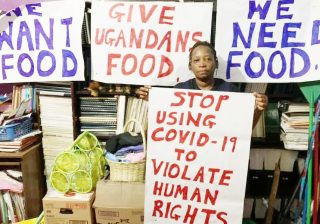 WE
WANT
FOOD
GIVE
UGANDANS
FOOD.
WE
NEED
FOOD.
STOP
USING
COVID-19
TO
VIOLATE
HUMAN
RIGHTS